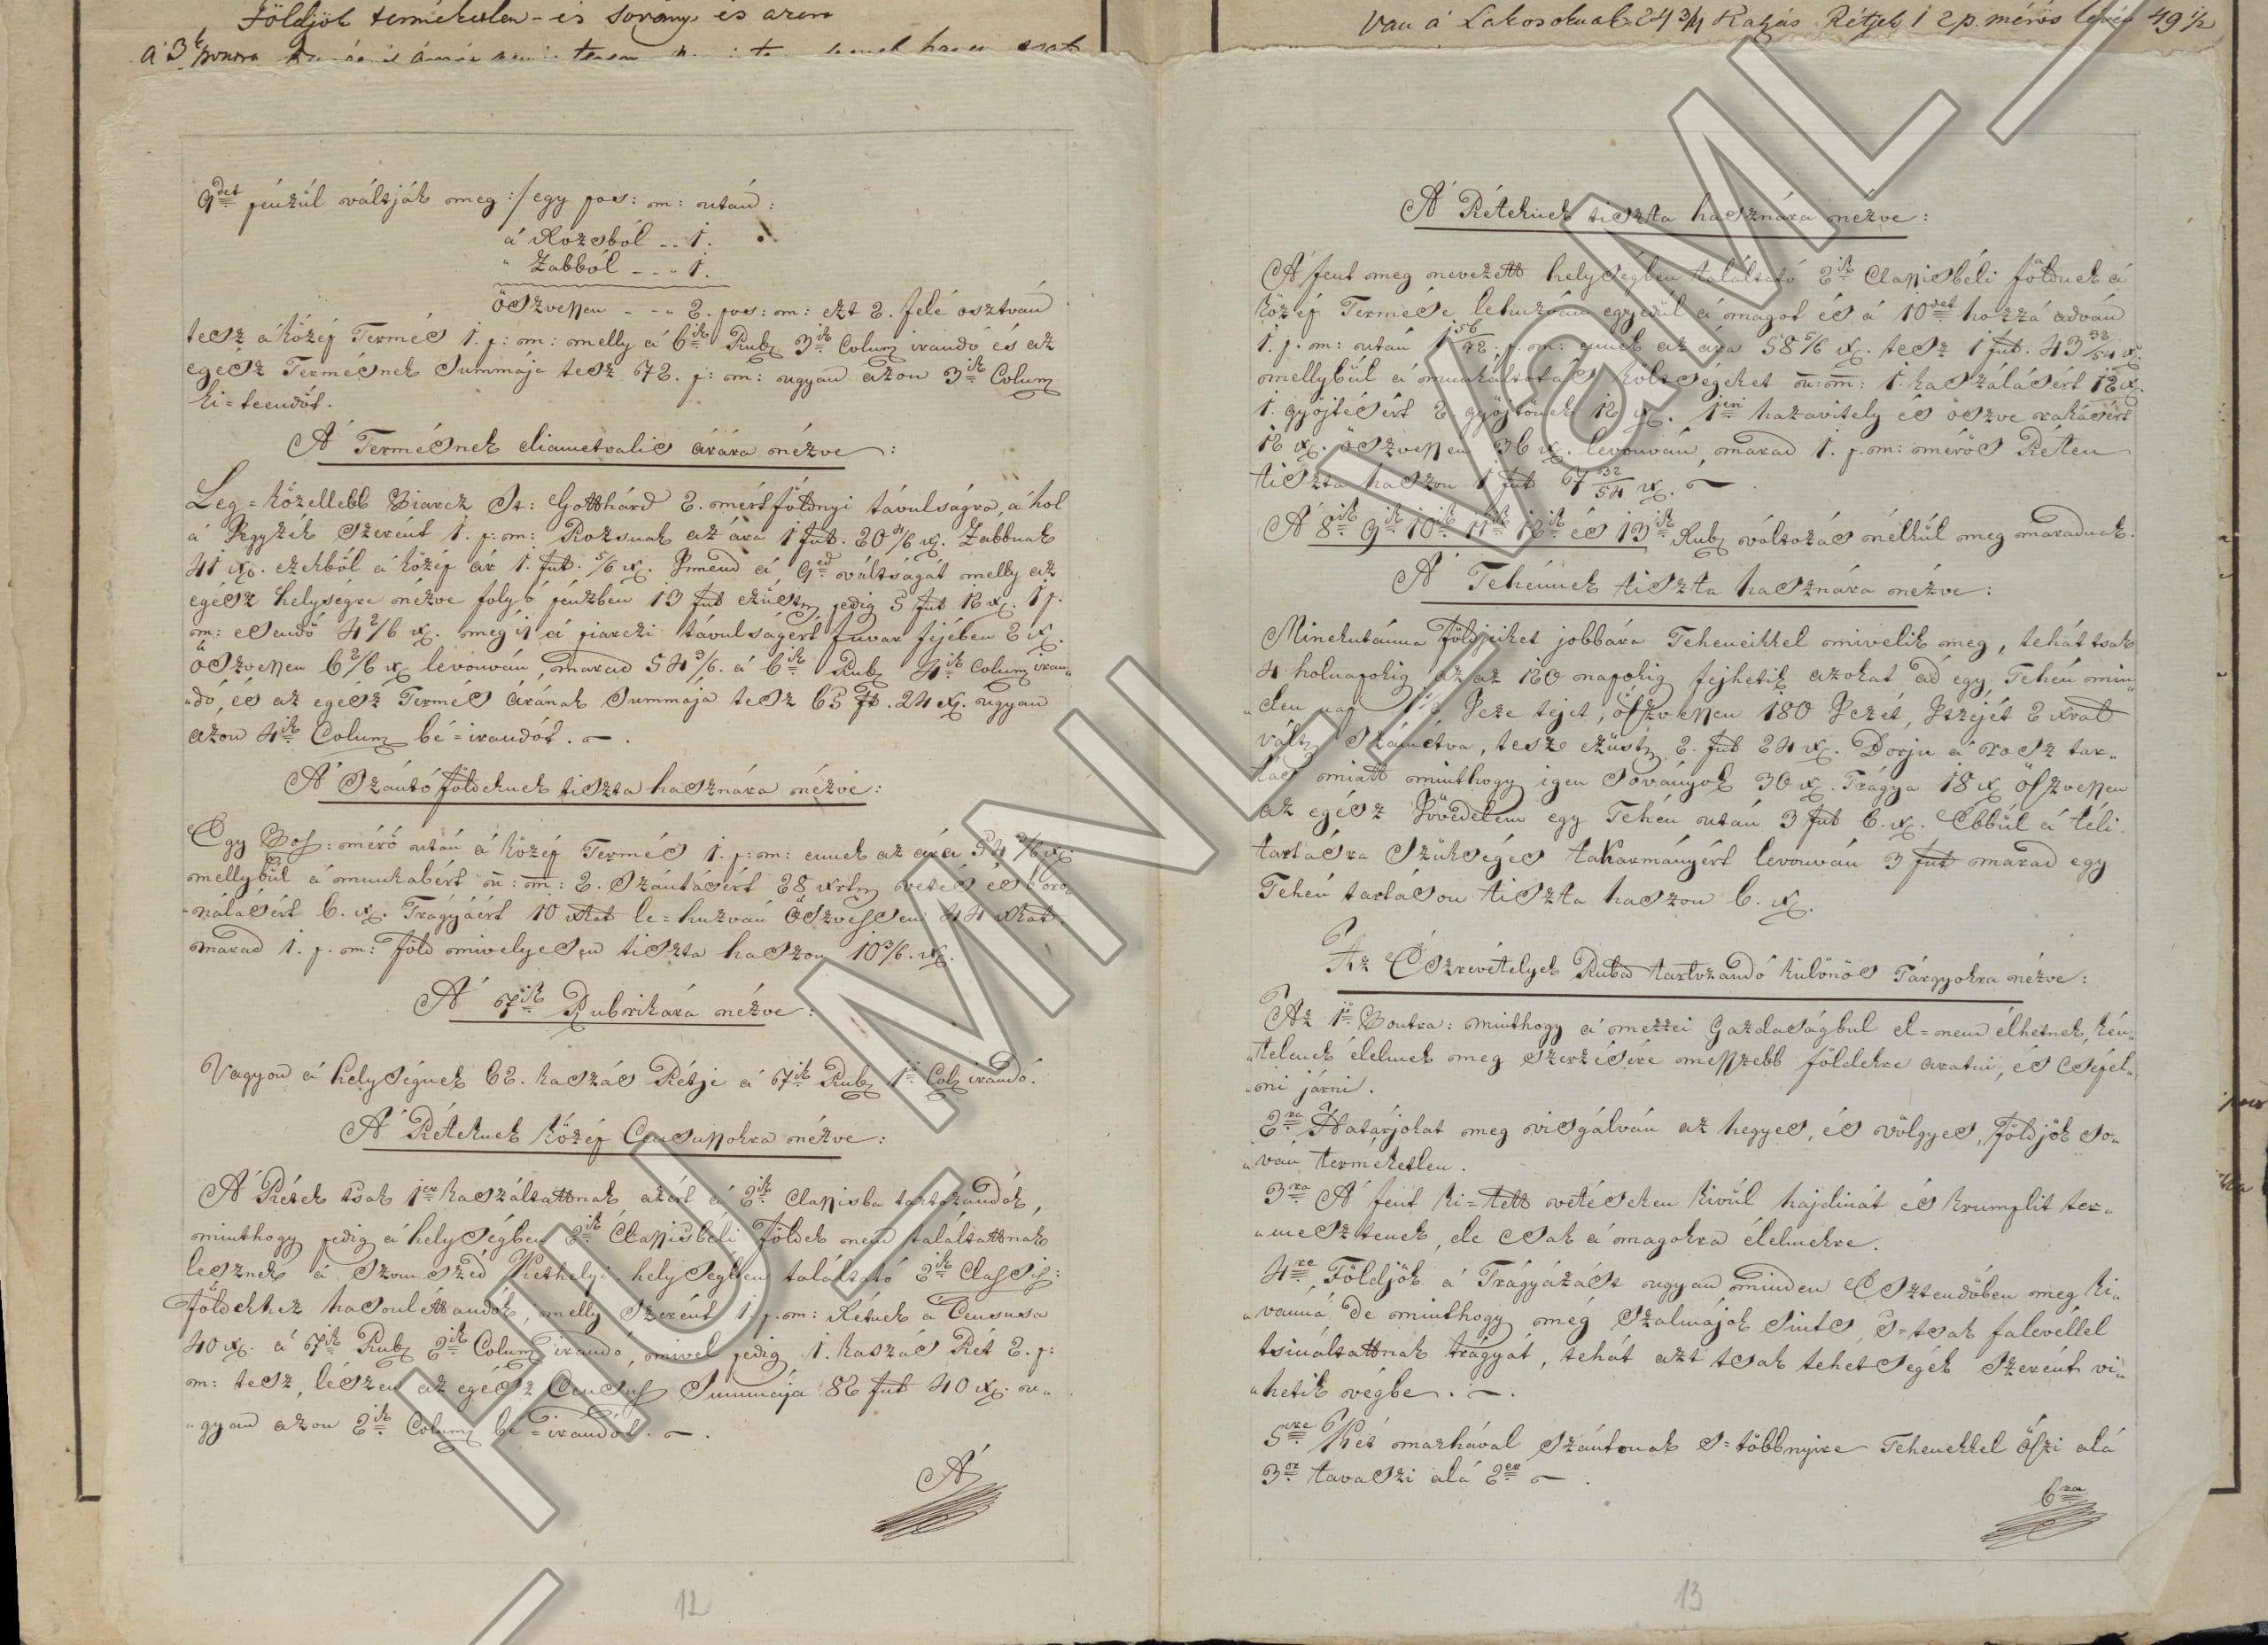 Földjök terméketlen - és sovány és azon
á 3k
Van á Lakosoknak 24 3/4 Kaszás Rétjek 1 2 p. mérős lévén 49 1/2
9det pénzül váltják meg :/ egy pos: m: után:
á Rozsból -- 1.
" Zabból - - " 1.
öszvessen - - " 2. pos: m: ezt 2. felé osztván
tesz á közép Termés 1. p: m: melly á 6ik Rub 3ik Colum irandó és az
egész Termésnek Summája tesz 72. p: m: ugyan azon 3ik Colum
ki=teendőt.
Á Termésnek diametralis árára nézve:
Leg=közellebb Piarcz St: Gotthárd 2. mértföldnyi távulságra, á hol
á Jegyzék szerént 1. p: m: Rozsnak az ára 1 fut. 20 4/6 x. Zabbnak
41 x. ezekből á közép ár 1. fut. 5/6 x. Innend á 9ed váltságát melly az
egész helységre nézve folyó pénzben 13 fut ezüst pedig 5 fut 12 x. 1 p:
m: esendő 4 2/6 x. megis á piarczi távulságért fuvar fejében 2 x.
öszvessen 6 2/6 x levonván, marad 54 3/6. á 6ik Rub 4ik Colum iran"
"dó, és az egész Termés árának Summája tesz 65 ft. 24 x. ugyan
azon 4ik Colum bé=irandót. ~ .
Á Szántó földeknek tiszta hasznára nézve:
Egy Pos: mérő után á közép Termés 1. p: m: ennek az ára 54 3/6 x:
mellybűl á munkabért u: m: 2. szántásért 28 xrt vetés és boro"
"nálásért 6. x. Trágyáért 10 xkat le=huzván öszvessen 44 xkat.
marad 1. p. m: föld mivelyesen tiszta haszon 10 3/6. x.
Á 7ik Rubrikára nézve:
Vagyon á helységnek 62. kaszás Rétje á 7ik Rub 1ő Col irandó.
Á Réteknek közép Censussokra nézve:
Á Rétek tsak 1er kaszáltattnak azért á 2ik Classisba tartozandók,
minthogy pedig á helységben 2ik Classisbéli földek nem találtattnak
lesznek á szomszéd Kethelyi helységben találtató 2ik Classis:
földekhez hasonlittandók, melly szerént 1. p. m: Rétnek á Censusa
40 x. á 7ik Rub 2ik Colum irandó, mivel pedig 1. kaszás Rét 2. p:
m: tesz, lészen az egész Census Summája 82 fut 40 x. u"
"gyan azon 2ik Colum bé=irandót. ~ .
Á
12
Á Réteknek tiszta hasznára nézve:
Á fent meg nevezett helységben találtató 2ik Classisbéli földnek á
közép Termése lehuzván egyedűl á magot és á 10det hozzá adván
1. p. m: után 1 56/72 p. m: ennek az ára 58 5/6 x. tesz 1 fut. 43 32/54 x.
mellybűl á munkáltatás költségeket u: m: 1. kaszálásért 12 x.
1. gyöjtésért 2. gyöjtőnek 12 x. 1eri hazavitely és öszve rakásért
12 x. öszvessen 36 x. levonván, marad 1. p. m: mérős Réten
tiszta haszon 1 fut 7 32/54 x. ~ .
Á 8ik 9ik 10ik 11ik 12ik és 13ik Rub változás nélkűl meg maradnak.
Á Tehénnek tiszta hasznára nézve:
Minekutánna földjeiket jobbára Teheneikkel mivelik meg, tehát tsak
4 holnapokig az az 120 napokig fejhetik azokat ád egy Tehén min"
"den nap Icze tejet, öszvessen 180 Iczét, Iczéjét 2 xral
vált számítva, tesz ezüst 2. fut 24 x. Borju á rosz tar"
tás miatt minthogy igen soványok 30 x. Trágya 18 x öszvessen
az egész Jövedelem egy Tehén után 3 fut 6. x. Ebbűl á téli
tartásra szükséges takarmányért levonván 3 fut marad egy
Tehén tartáson tiszta haszon 6. x.
Az Észrevételyek Rub tartozandó külőnös Tárgyokra nézve:
Az 1ő Pontra: minthogy á mezzei Gazdaságbul el=nem élhetnek, kén"
"telenek élelmek meg szerzésére messzebb földekre aratni, és csépel"
"ni járni.
2ra Határjokat meg visgálván az hegyes, és völgyes, földjök so"
"ván terméketlen.
3ra Á fent ki=tett vetéseken kivűl hajdinát és krumplit ter"
"mesztenek, de csak á magokra élelmekre.
4re Földjök á Trágyázást ugyan minden Esztendőben meg ki"
"vánná de minthogy még szalmájok sints, s=tsak falevéllel
tsináltattnak trágyát, tehát azt tsak tehetségek szerént vi"
"hetik végbe. ~ .
5re Két marhával szántonak s=többnyire Tehenekkel őszi alá
3or tavaszi alá 2er ~ .
6ra
13